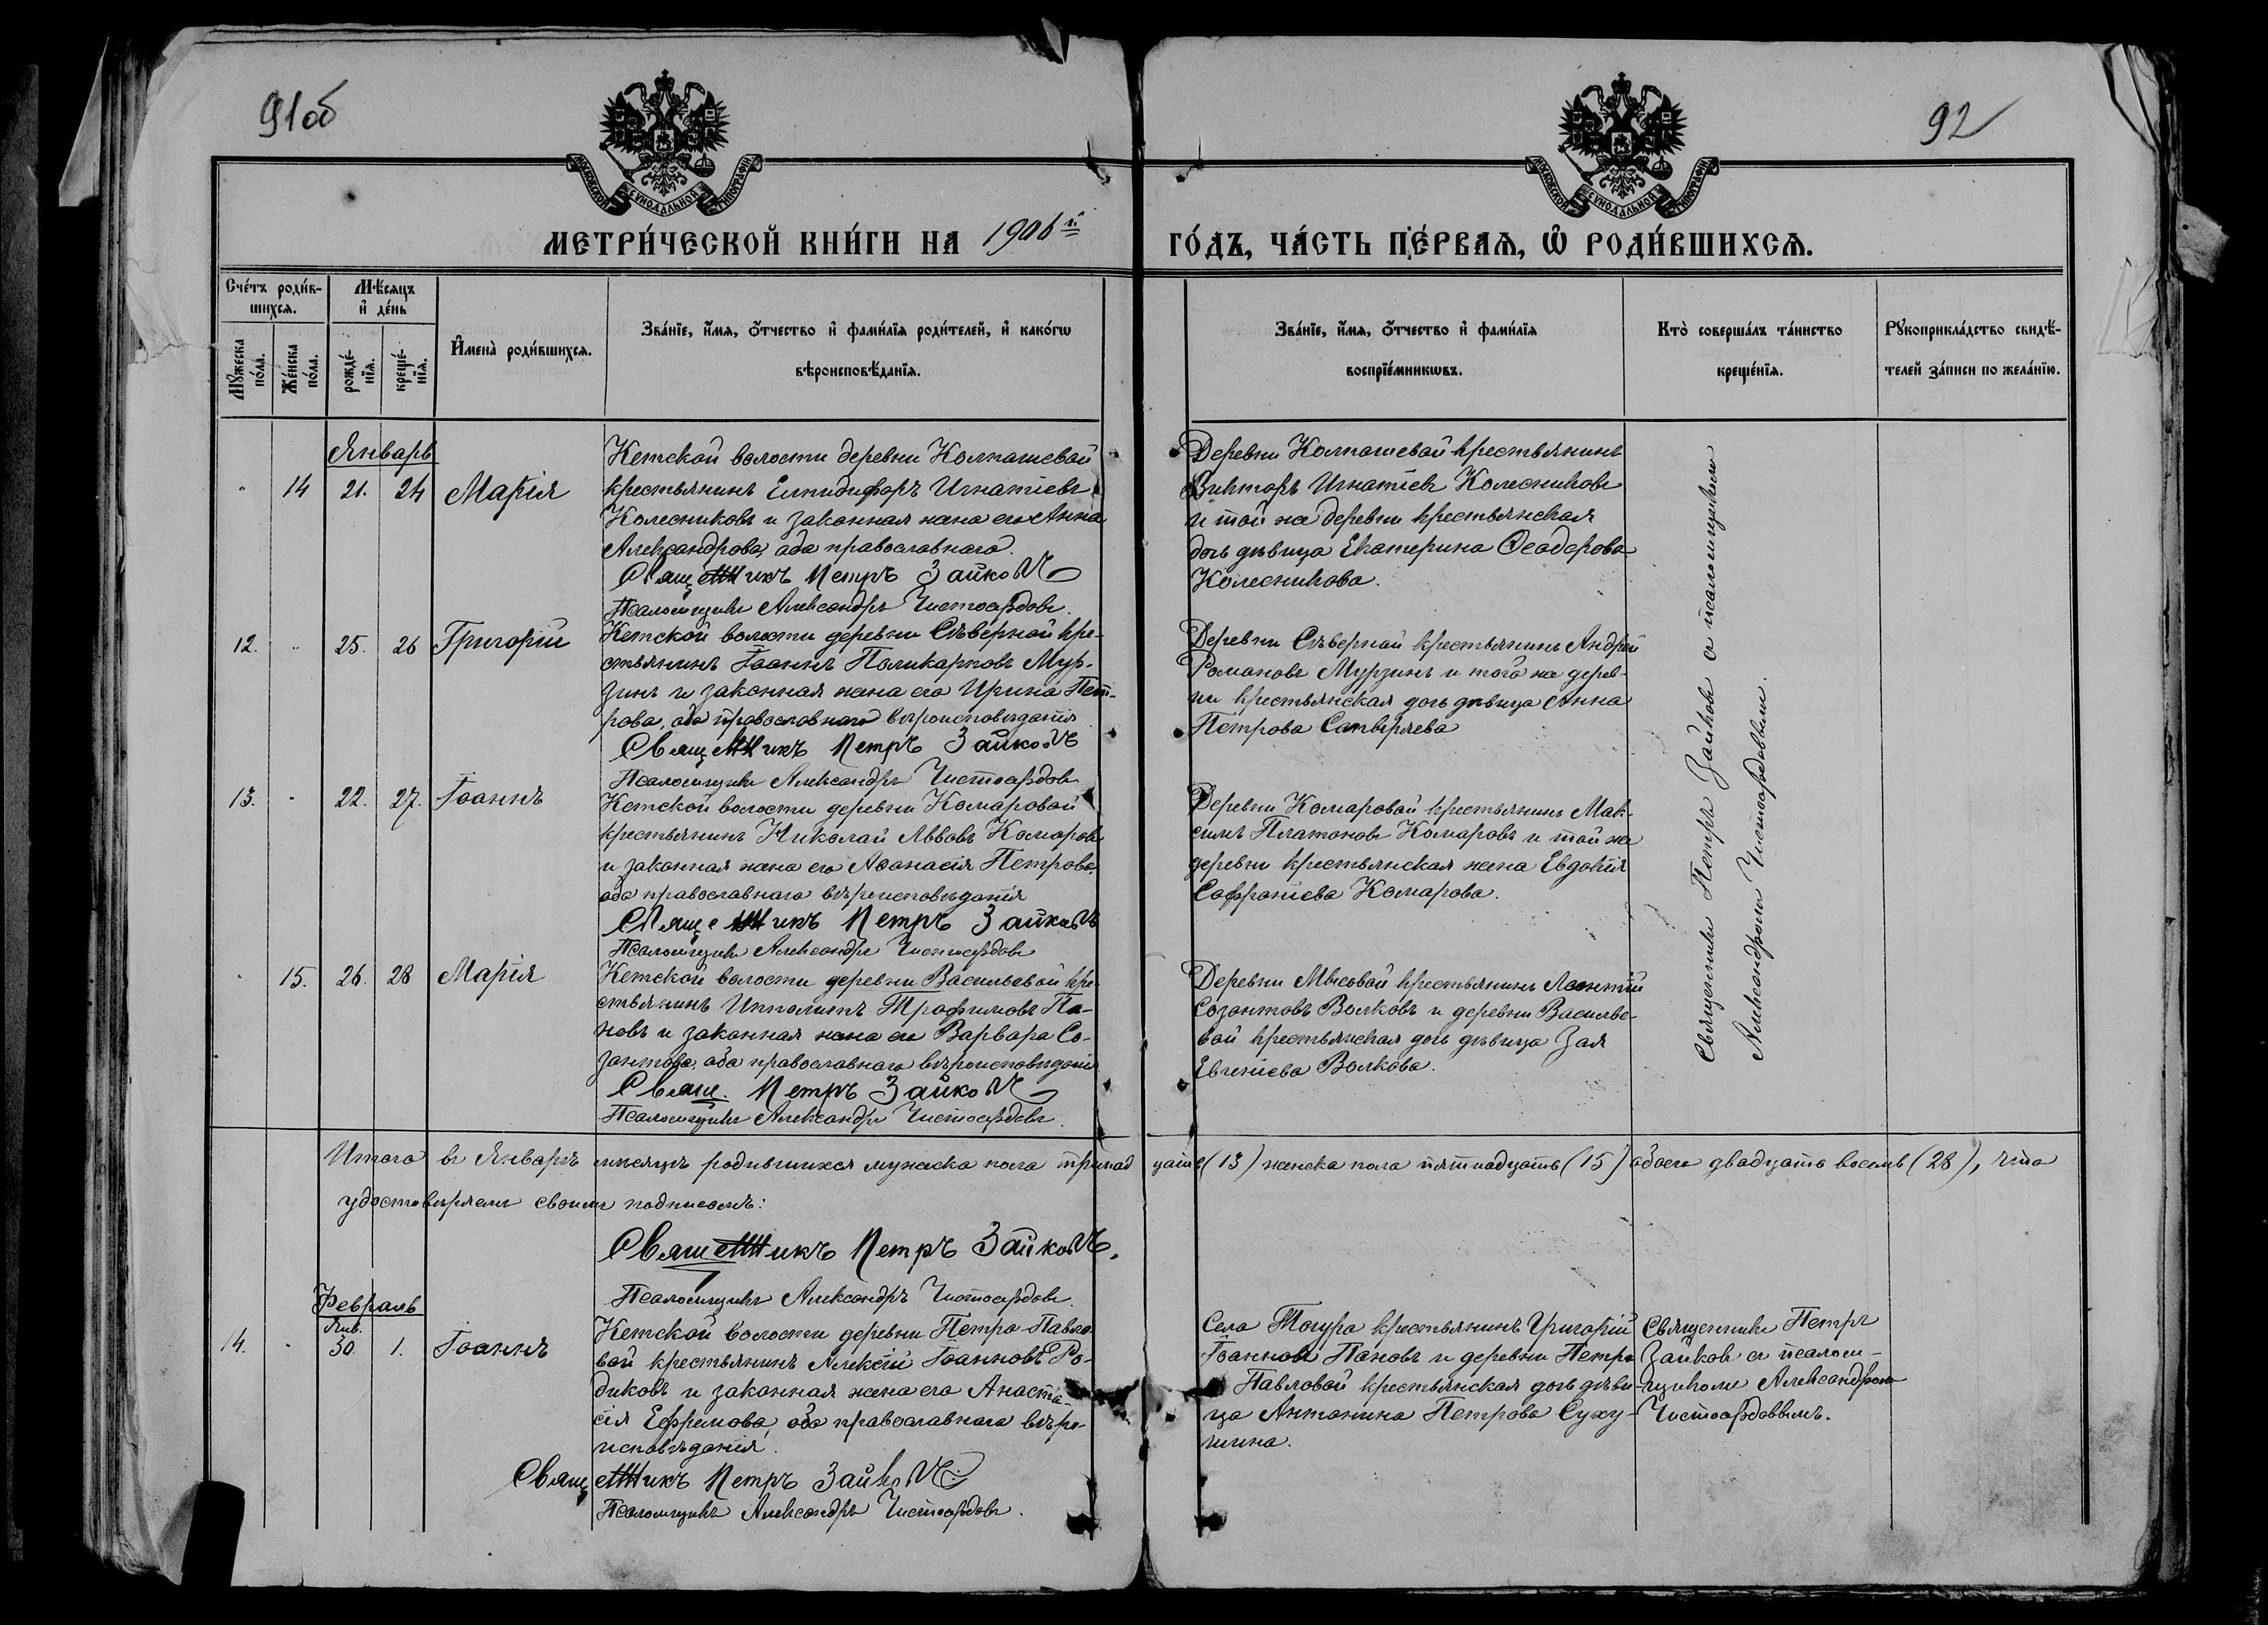 91об
92
МОСКОВСКОЙ СУНОДАЛЬНОЙ ТИПОГРАФІИ
МОСКОВСКОЙ СУНОДАЛЬНОЙ ТИПОГРАФІИ
МЕТРИ́ЧЕСКОЙ КНИ́ГИ НА 1906й
ГО́ДЪ, ЧА́СТЬ ПЕ́РВАѦ, Ѡ҆ РОДИ́ВШИХСѦ.
Сче́тъ роди́в-
шихсѧ.
Мѣ́сѧцъ
и҆ де́нь
Мꙋ́жеска
по́ла.
Же́нска
по́ла.
рожде́-
нїѧ.
креще́-
нїѧ.
И҆мена̀ роди́вшихсѧ.
Зва́нїе, и҆́мѧ, ѻ҆́тчество и҆ фами́лїѧ роди́телей, и҆ како́гѡ
вѣроисповѣ́данїѧ.
Зва́нїе, и҆́мѧ, ѻ҆́тчество и҆ фами́лїѧ
воспрїе́мникѡвъ.
Кто̀ соверша́лъ та́инство
креще́нїѧ.
Рꙋкоприкла́дство свидѣ́-
телей за́писи по жела́нїю.
Январь
" 14 21. 24 Марія
Кетской волости деревни Колпашевой
крестьянинъ Елпидифоръ Игнатіевъ
Колесниковъ и законная жена его Анна
Александрова, оба православнаго.
Священникъ Петръ Зайковъ
Псаломщикъ Александръ Чистосердовъ.
Деревни Колпашевой крестьянинъ
Викторъ Игнатіевъ Колесниковъ
и той же деревни крестьянская
дочь дѣвица Екатерина Ѳеодорова
Колесникова.
12. " 25. 26 Григорій
Кетской волости деревни Сѣверной кре-
стьянинъ Іоаннъ Поликарповъ Мур-
зинъ и законная жена его Ирина Пет-
рова, оба православнаго вѣроисповѣданія
Священникъ Петръ Зайковъ
Псаломщикъ Александръ Чистосердовъ
Деревни Сѣверной крестьянинъ Андрей
Романовъ Мурзинъ и того же дерев-
ни крестьянская дочь дѣвица Анна
Петрова
13. " 22. 27. Іоаннъ
Кетской волости деревни Комаровой
крестьянинъ Николай Львовъ Комаровъ
и законная жена его Аѳанасія Петрова,
оба православнаго вѣроисповѣданія
Священникъ Петръ Зайковъ
Псаломщикъ Александръ Чистосердовъ
Деревни Комаровой крестьянинъ Мак-
симъ Платоновъ Комаровъ и той же
деревни крестьянская жена Евдокія
Софроніева Комарова.
" 15. 26. 28 Марія
Кетской волости деревни Васильевой кре-
стьянинъ Ипполитъ Трофимовъ Па-
новъ и законная жена его Варвара Со-
зонтова, оба православнаго вѣроисповѣданія
Свящ. Петръ Зайковъ
Псаломщикъ Александръ Чистосердовъ.
Деревни Мысовой крестьянинъ Леонтій
Созонтовъ Волковъ и деревни Василье-
вой крестьянская дочь дѣвица Зоя
Евгеніева Волкова.
Священникъ Петръ Зайковъ съ псаломщикомъ
Александромъ Чистосердовымъ.
Итого въ Январѣ мѣсяцѣ родившихся мужеска пола тринадцать (13) женска пола пятнадцать (15) обоего двадцать восемь (28), что
удостовѣряемъ своимъ подписомъ:
Священникъ Петръ Зайковъ.
Псаломщикъ Александръ Чистосердовъ.
Февраль
Янв.
14. " 30. 1. Іоаннъ
Кетской волости деревни Петро-Павло-
вой крестьянинъ Алексій Іоанновъ Ро-
диковъ и законная жена его Анаста-
сія Ефремова, оба православнаго вѣро-
исповѣданія.
Священникъ Петръ Зайковъ
Псаломщикъ Александръ Чистосердовъ.
Села Тогура крестьянинъ Григорій
Іоанновъ Пановъ и деревни Петро
Павловой крестьянская дочь дѣви-
ца Антонина Петрова Суху-
шина.
Священникъ Петръ
Зайковъ съ псалом-
щикомъ Александромъ
Чистосердовымъ.